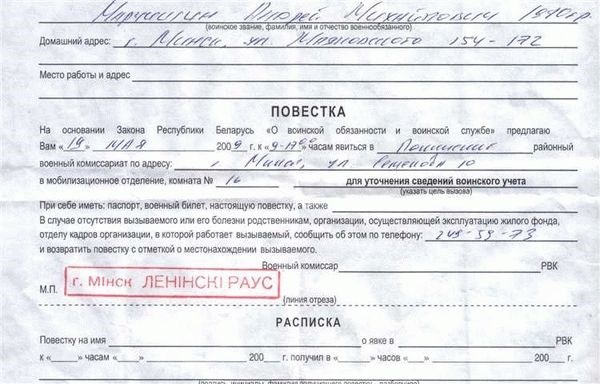 Андрей Михайлович 1990 г.р.
(воинское звание, фамилия, имя и отчество военнообязанного)
Домашний адрес: г. Минск, ул. Маяковского 154-172
Место работы и адрес
ПОВЕСТКА
На основании Закона Республики Беларусь «О воинской обязанности и воинской службе» предлагаю
Вам «19» мая 2009 г. к «9-17⁰⁰» часам явиться в Ленинский районный
военный комиссариат по адресу: г. Минск, ул.
в мобилизационное отделение, комната № 16 для уточнения сведений воинского учета
(указать цель вызова)
При себе иметь: паспорт, военный билет, настоящую повестку, а также
В случае отсутствия вызываемого или его болезни родственникам, организации, осуществляющей эксплуатацию жилого фонда,
отделу кадров организации, в которой работает вызываемый, сообщить об этом по телефону: 249-59-73
и возвратить повестку с отметкой о местонахождении вызываемого.
Военный комиссар РВК
М.П. г. Мінск ЛЕНІНСКІ РАУС
(линия отреза)
РАСПИСКА
Повестку на имя о явке в РВК
к « » часам « » 200 г. получил в « » часов « » 200 г.